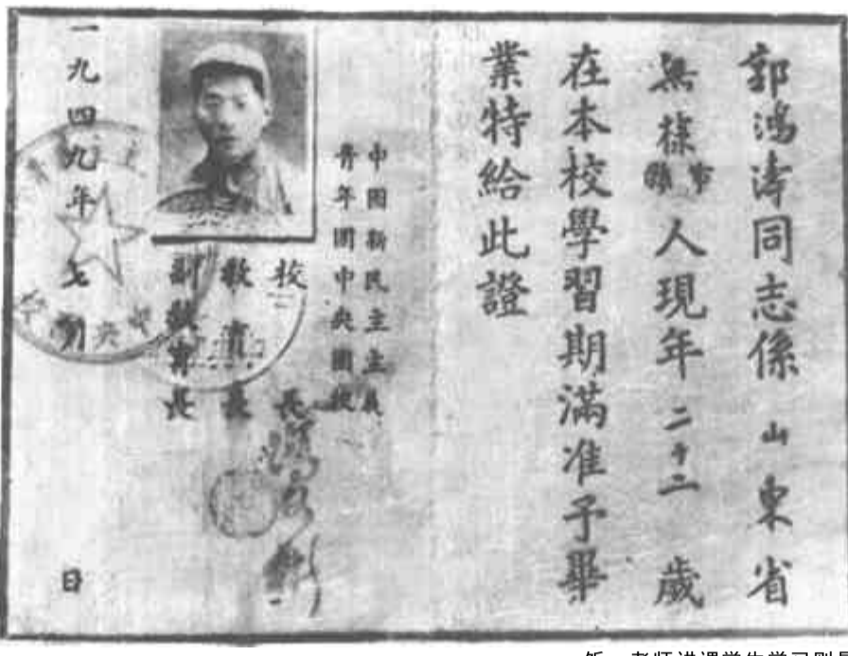 郭鴻濤同志係山東省
無棣縣市人現年二十二歲
在本校學習期滿准予畢
業特給此證
中國新民主主義
青年團中央團校
校長
教育長
副教育長
一九四九年七月日